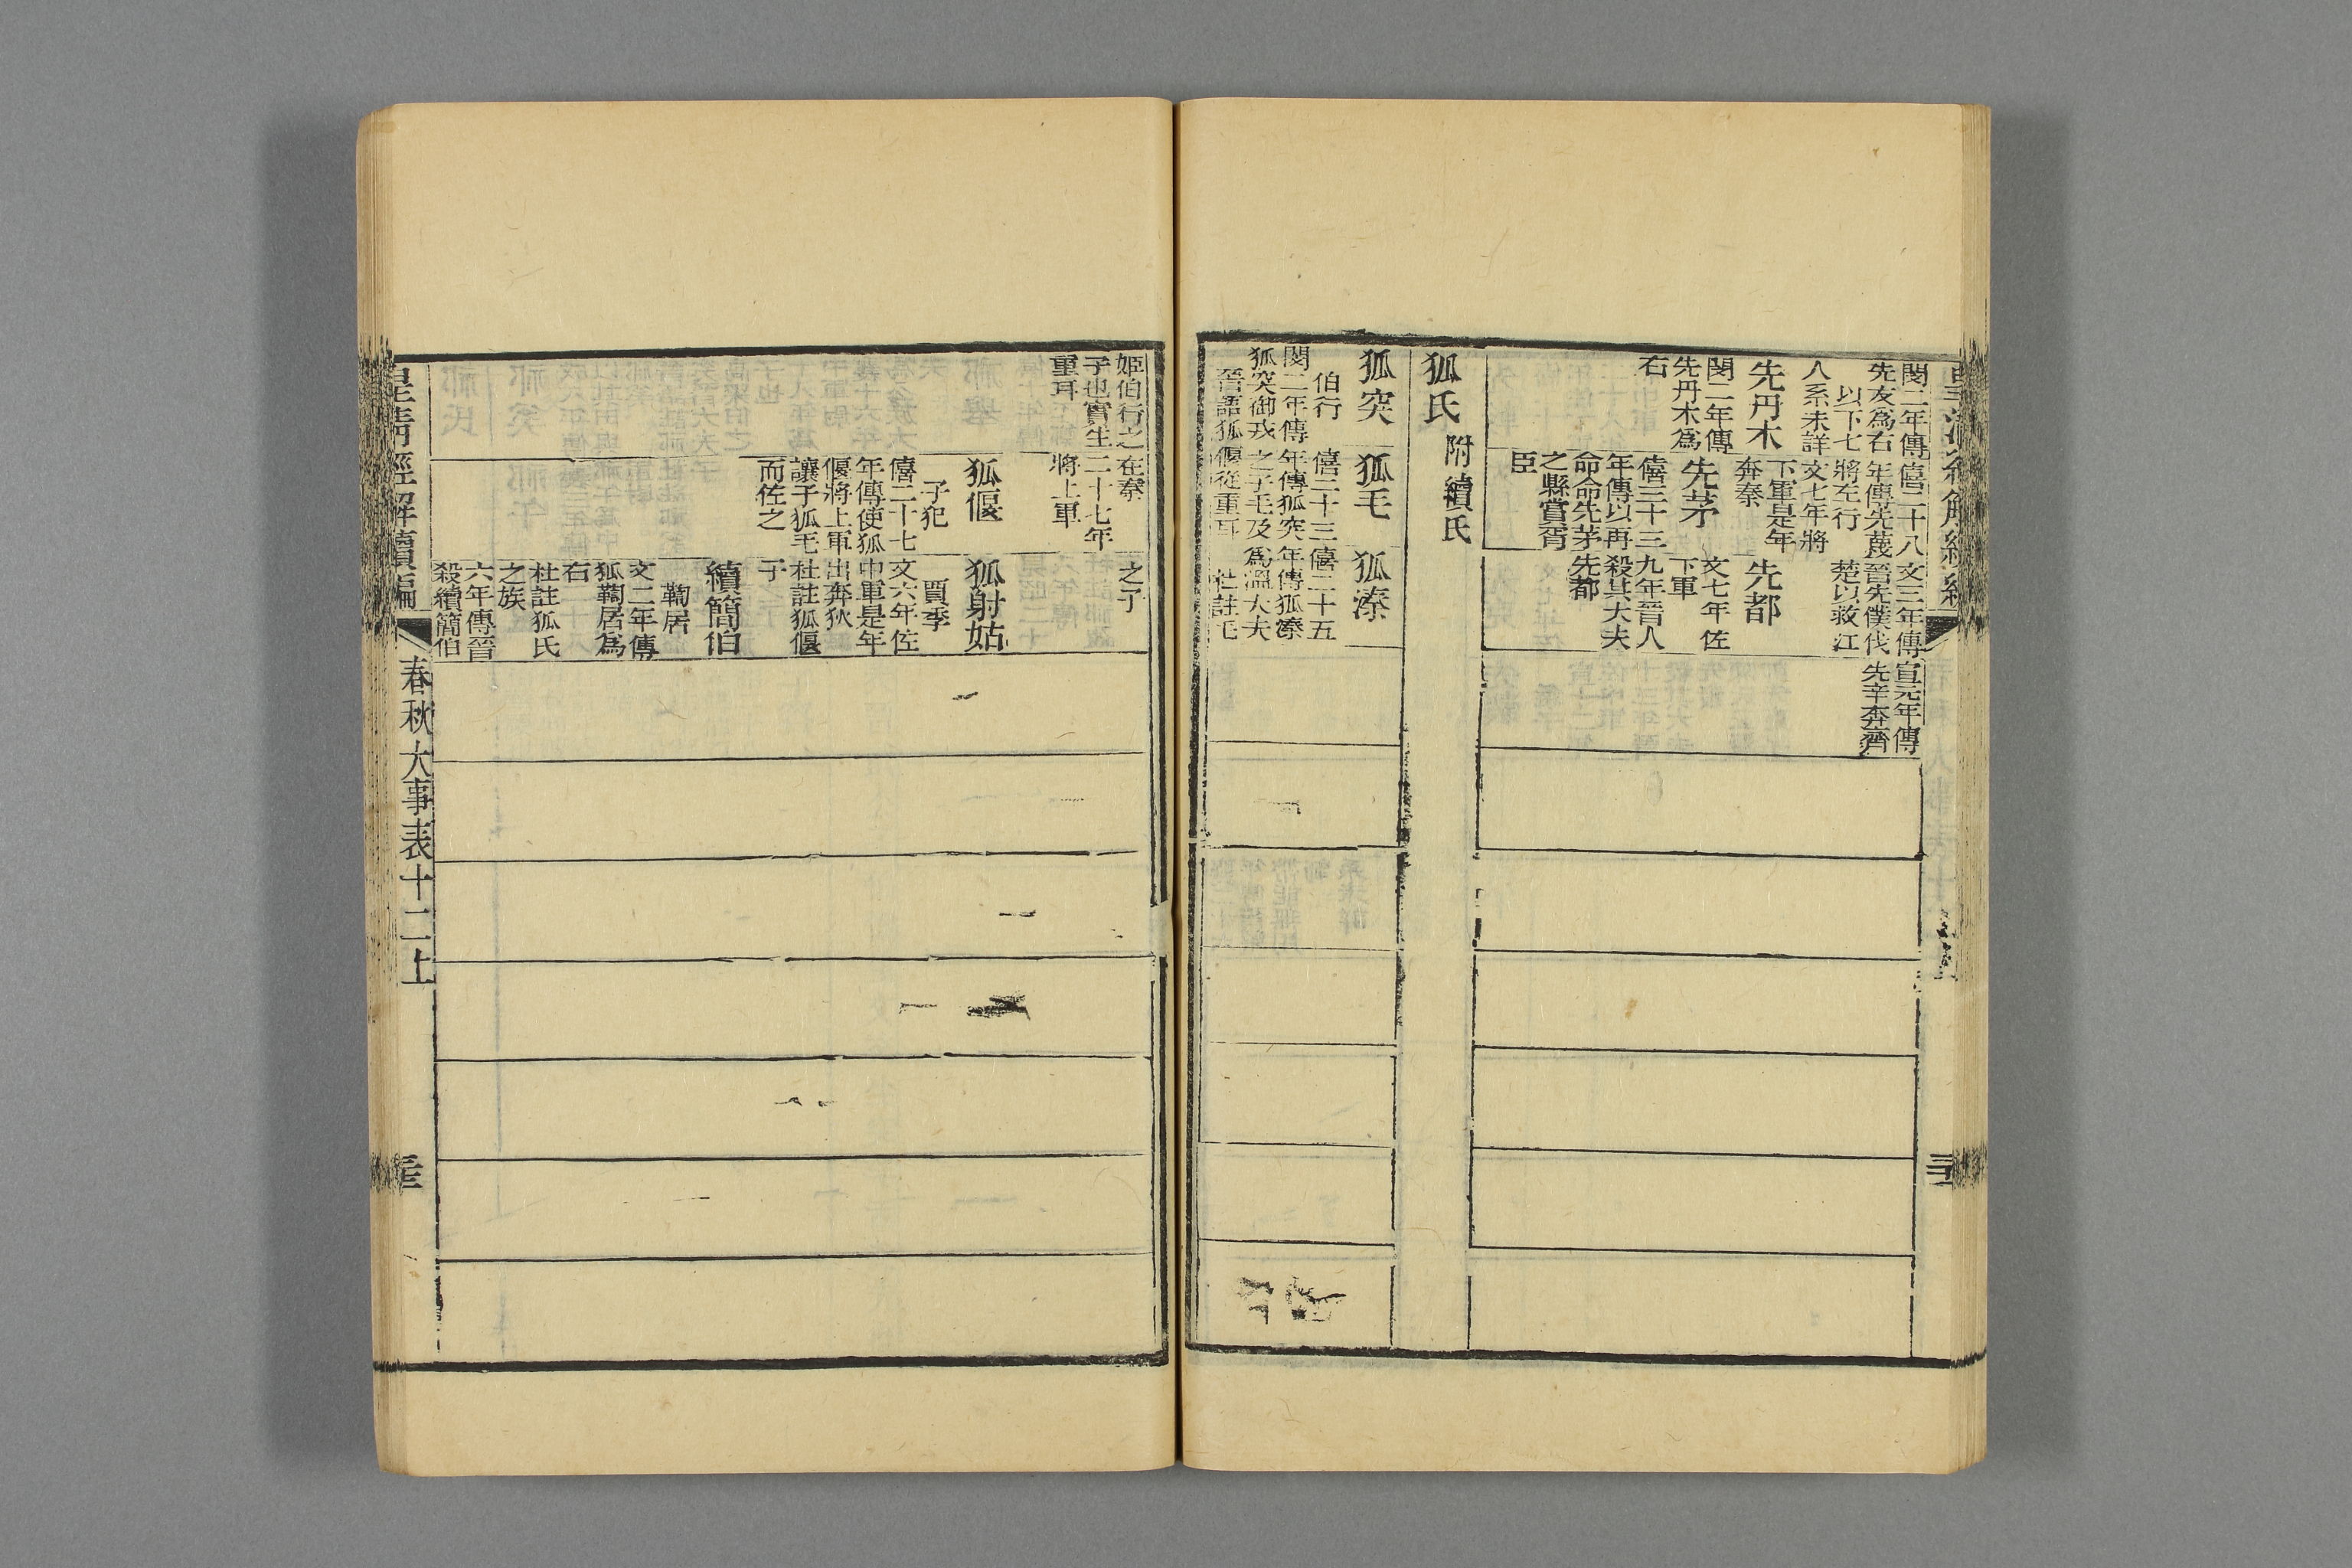 閔二年傳
先友爲右
以下七
人系未詳
先丹木
閔二年傳
先丹木爲
右
僖二十八
年傳先蔑
將左行
文七年將
下軍是年
奔秦
先茅
僖三十三
年傳以再
命命先茅
之縣賞胥
臣
文三年傳
晉先僕伐
楚以救江
先都
文七年佐
下軍
九年晉人
殺其大夫
先都
宣元年傳
先辛奔齊
狐氏 附續氏
狐突
伯行
閔二年傳
狐突御戎
晉語狐
狐毛
僖二十三
年傳狐突
之子毛及
偃從重耳
狐溱
僖二十五
年傳狐溱
爲溫大夫
杜註毛
姬伯行之
子也實生
重耳
在秦
二十七年
將上軍
狐偃
子犯
僖二十七
年傳使狐
偃將上軍
讓于狐毛
而佐之
之子
狐射姑
賈季
文六年佐
中軍是年
出奔狄
杜註狐偃
子
續簡伯
鞫居
文二年傳
狐鞫居爲
右
杜註狐氏
之族
六年傳晉
殺續簡伯
皇清經解續編
春秋大事表十二上